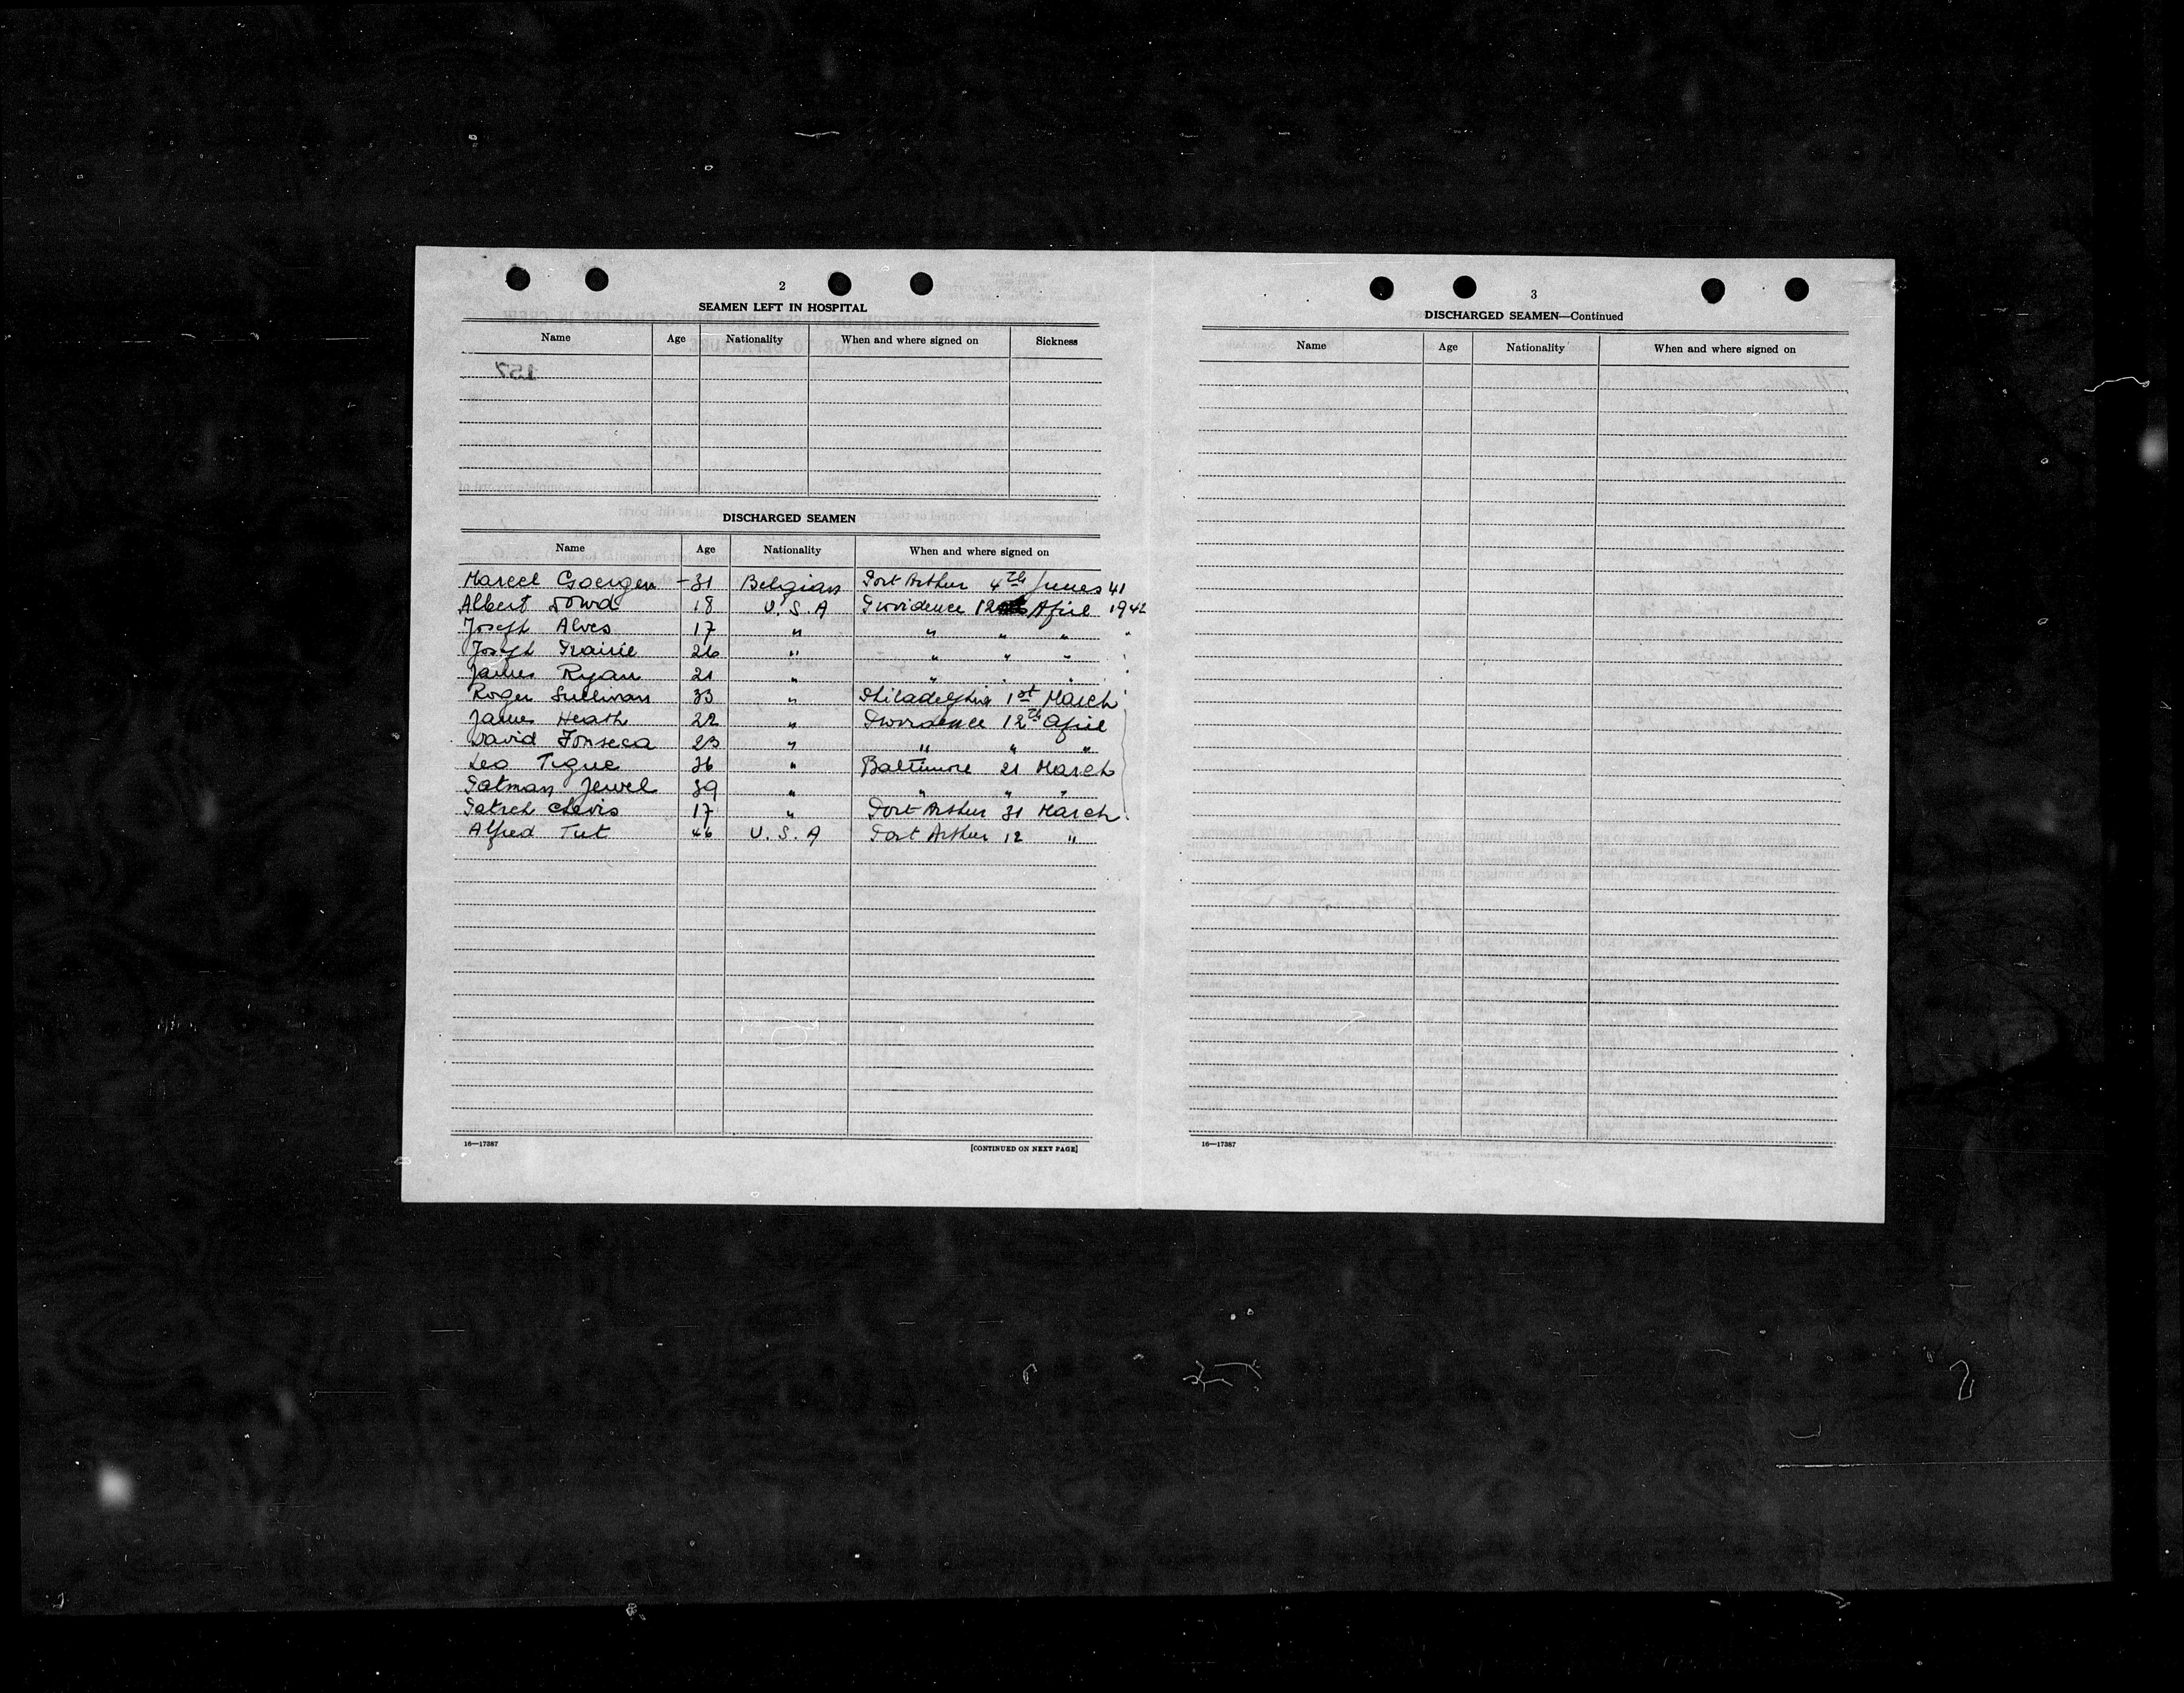 2
SEAMEN LEFT IN HOSPITAL
Name Age Nationality When and where signed on Sickness
157
DISCHARGED SEAMEN
Name Age Nationality When and where signed on
Marcel Goergen - 31 Belgian Port Arthur 4th Junes 41
Albert Dowd 18 U.S.A Providence 12 April 1942
Joseph Alves 17 " " " " "
Joseph Prairie 26 " " " "
James Ryan 21 " " " "
Roger Sullivan 33 " Philadelphia 1st March
James Heath 22 " Providence 12th April
David Fonseca 23 " " " "
Leo Tigue 36 " Baltimore 21 March
Patman Jewel 39 " " " "
Patrch Clevis 17 " Port Arthur 31 March
Alfred Tut 46 U.S.A Port Arthur 12 "
16—17387 [CONTINUED ON NEXT PAGE]
3
DISCHARGED SEAMEN—Continued
Name Age Nationality When and where signed on
16—17387